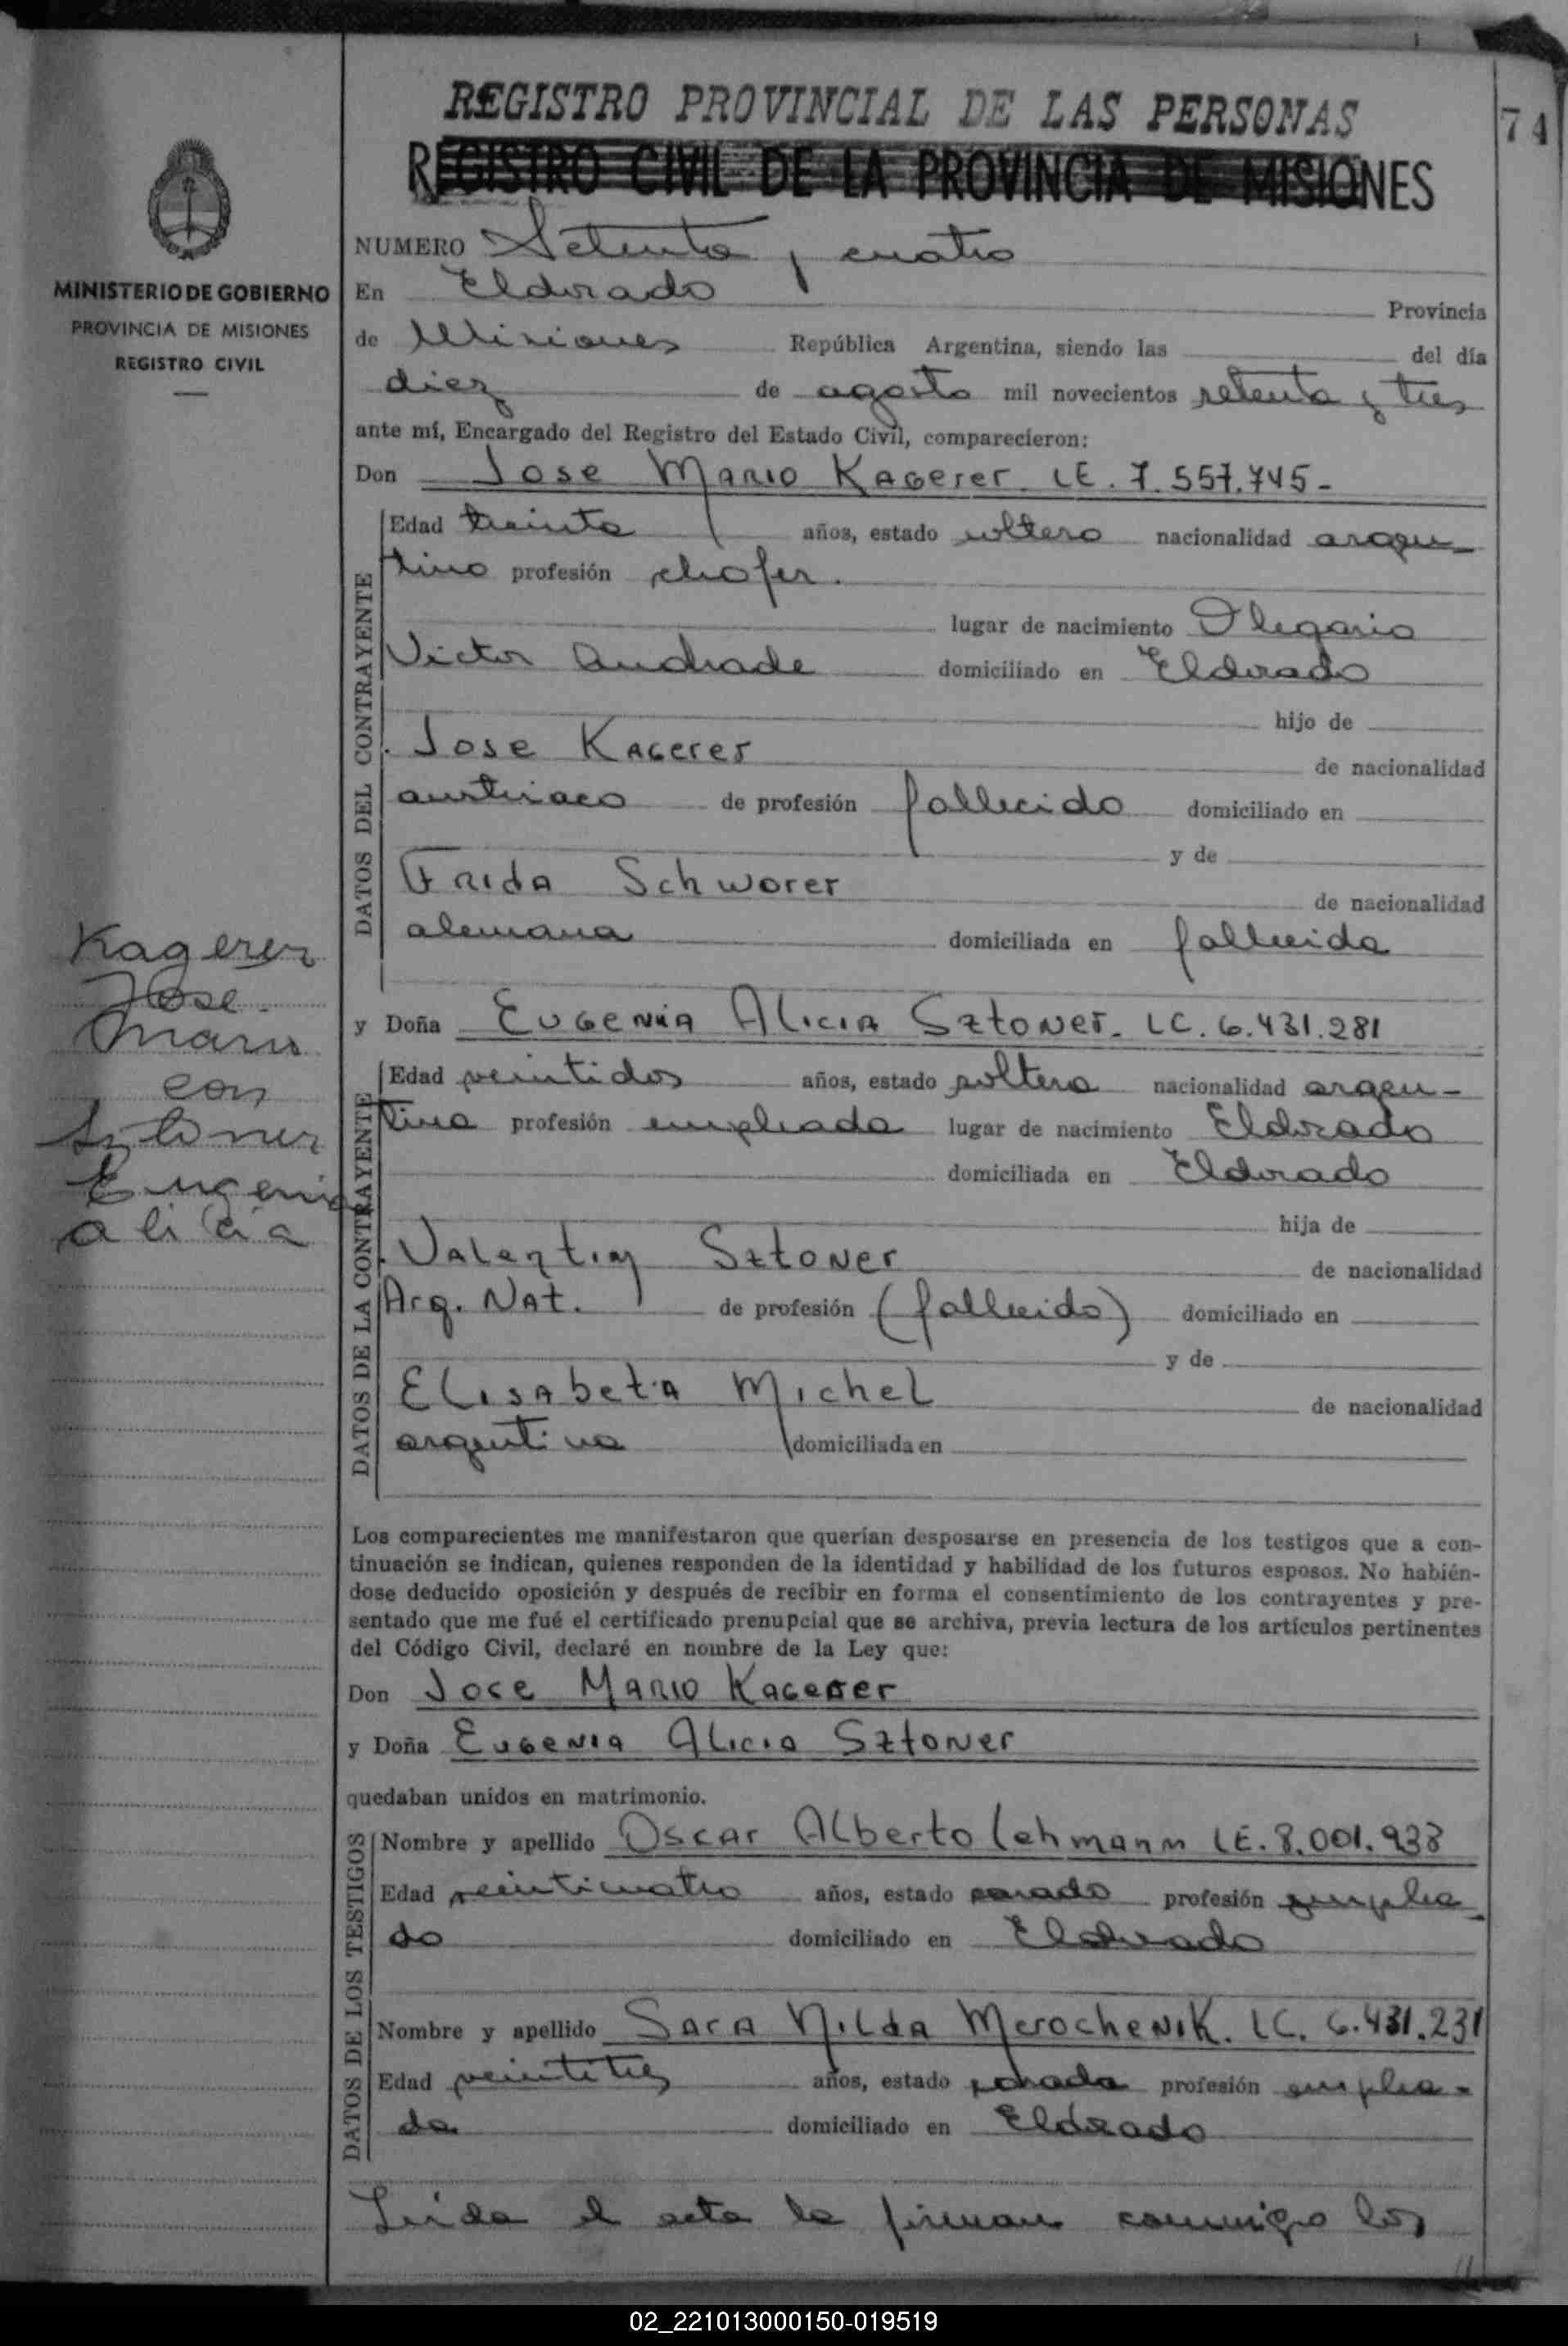 REGISTRO PROVINCIAL DE LAS PERSONAS
74
REGISTRO CIVIL DE LA PROVINCIA DE MISIONES
MINISTERIO DE GOBIERNO
PROVINCIA DE MISIONES
REGISTRO CIVIL
NUMERO Setenta y cuatro
En Eldorado Provincia
de Misiones República Argentina, siendo las del día
diez de agosto mil novecientos setenta y tres
ante mí, Encargado del Registro del Estado Civil, comparecieron:
Don Jose Mario Kagerer LE. 7.557.745-
DATOS DEL CONTRAYENTE
Edad treinta años, estado soltero nacionalidad argen-
tino profesión chofer.
lugar de nacimiento Olegario
Victor Andrade domiciliado en Eldorado
hijo de
Jose Kagerer de nacionalidad
austriaco de profesión fallecido domiciliado en
y de
Frida Schworer de nacionalidad
alemana domiciliada en fallecida
Kagerer
Jose
Mario
con
Sztoner
Eugenia
alicia
y Doña Eugenia Alicia Sztoner. LC. 6.431.281
DATOS DE LA CONTRAYENTE
Edad veintidos años, estado soltera nacionalidad argen-
tina profesión empleada lugar de nacimiento Eldorado
domiciliada en Eldorado
hija de
Valentin Sztoner de nacionalidad
Arg. Nat. de profesión (fallecido) domiciliado en
y de
Elisabeta Michel de nacionalidad
argentina domiciliada en
Los comparecientes me manifestaron que querían desposarse en presencia de los testigos que a con-
tinuación se indican, quienes responden de la identidad y habilidad de los futuros esposos. No habién-
dose deducido oposición y después de recibir en forma el consentimiento de los contrayentes y pre-
sentado que me fué el certificado prenupcial que se archiva, previa lectura de los artículos pertinentes
del Código Civil, declaré en nombre de la Ley que:
Don Jose Mario Kagerer
y Doña Eugenia Alicia Sztoner
quedaban unidos en matrimonio.
DATOS DE LOS TESTIGOS
Nombre y apellido Oscar Alberto Lehmann LE. 8.001.938
Edad veinticuatro años, estado casado profesión emplea-
do domiciliado en Eldorado
Nombre y apellido Sara Nilda Merochenik. LC. 6.431.231
Edad veintitres años, estado casada profesión emplea-
da domiciliado en Eldorado
Leida el acta la firman conmigo los
02_221013000150-019519